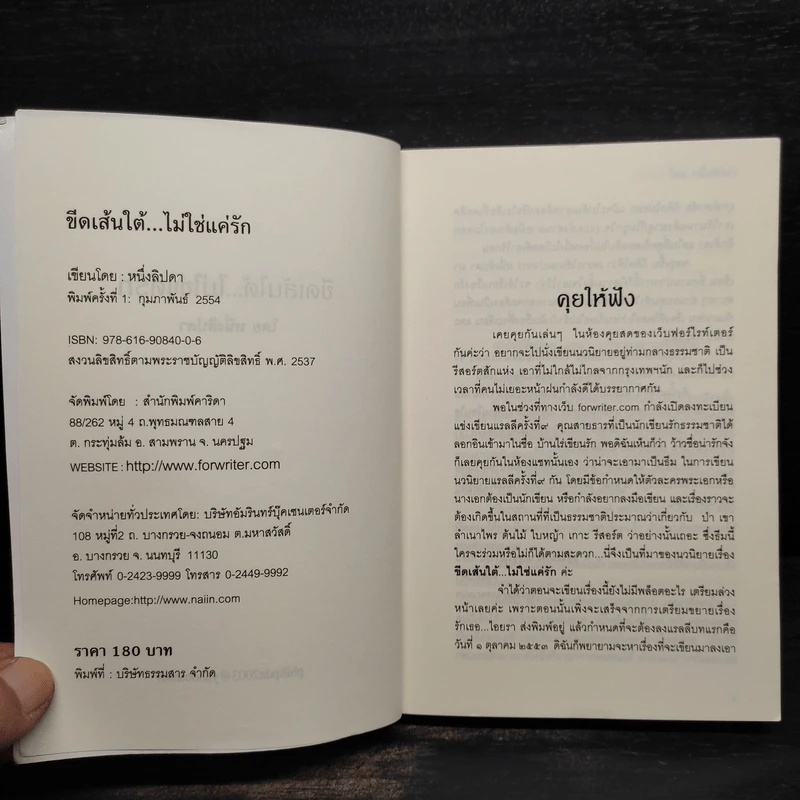 ขีดเส้นใต้...ไม่ใช่แค่รัก
เขียนโดย : หนึ่งลิปดา
พิมพ์ครั้งที่ 1: กุมภาพันธ์ 2554
ISBN: 978-616-90840-0-6
สงวนลิขสิทธิ์ตามพระราชบัญญัติลิขสิทธิ์ พ.ศ. 2537
จัดพิมพ์โดย : สำนักพิมพ์คาริดา
88/262 หมู่ 4 ถ.พุทธมณฑลสาย 4
ต. กระทุ่มล้ม อ. สามพราน จ. นครปฐม
WEBSITE : http://www.forwriter.com
จัดจำหน่ายทั่วประเทศโดย: บริษัทอัมรินทร์บุ๊คเซนเตอร์จำกัด
108 หมู่ที่2 ถ. บางกรวย-จงถนอม ต.มหาสวัสดิ์
อ. บางกรวย จ. นนทบุรี 11130
โทรศัพท์ 0-2423-9999 โทรสาร 0-2449-9992
Homepage:http://www.naiin.com
ราคา 180 บาท
พิมพ์ที่ : บริษัทธรรมสาร จำกัด
คุยให้ฟัง
เคยคุยกันเล่นๆ ในห้องคุยสดของเว็บฟอร์ไรท์เตอร์
กันค่ะว่า อยากจะไปนั่งเขียนนวนิยายอยู่ท่ามกลางธรรมชาติ เป็น
รีสอร์ตสักแห่ง เอาที่ไม่ใกล้ไม่ไกลจากกรุงเทพฯนัก และก็ไปช่วง
เวลาที่คนไม่เยอะหน้าฝนกำลังดีได้บรรยากาศกัน
พอในช่วงที่ทางเว็บ forwriter.com กำลังเปิดลงทะเบียน
แข่งเขียนแรลลีครั้งที่๙ คุณสายธารที่เป็นนักเขียนรักธรรมชาติได้
ลอกอินเข้ามาในชื่อ บ้านไร่เขียนรัก พอดิฉันเห็นก็ว่า ว้าวชื่อน่ารักจัง
ก็เลยคุยกันในห้องแชทนั้นเอง ว่าน่าจะเอามาเป็นธีม ในการเขียน
นวนิยายแรลลีครั้งที่๙ กัน โดยมีข้อกำหนดให้ตัวละครพระเอกหรือ
นางเอกต้องเป็นนักเขียน หรือกำลังอยากลงมือเขียน และเรื่องราวจะ
ต้องเกิดขึ้นในสถานที่ที่เป็นธรรมชาติประมาณว่าเกี่ยวกับ ป่า เขา
ลำเนาไพร ต้นไม้ ใบหญ้า เกาะ รีสอร์ต ว่าอย่างนั้นเถอะ ซึ่งธีมนี้
ใครจะร่วมหรือไม่ก็ได้ตามสะดวก...นี่จึงเป็นที่มาของนวนิยายเรื่อง
ขีดเส้นใต้...ไม่ใช่แค่รัก ค่ะ
จำได้ว่าตอนจะเขียนเรื่องนี้ยังไม่มีพล็อตอะไร เตรียมล่วง
หน้าเลยค่ะ เพราะตอนนั้นเพิ่งจะเสร็จจากการเตรียมขยายเรื่อง
รักเธอ...ไอยรา ส่งพิมพ์อยู่ แล้วกำหนดที่จะต้องลงแรลลีบทแรกคือ
วันที่ ๑ ตุลาคม ๒๕๕๓ ดิฉันก็พยายามจะหาเรื่องที่จะเขียนมาลงเอา